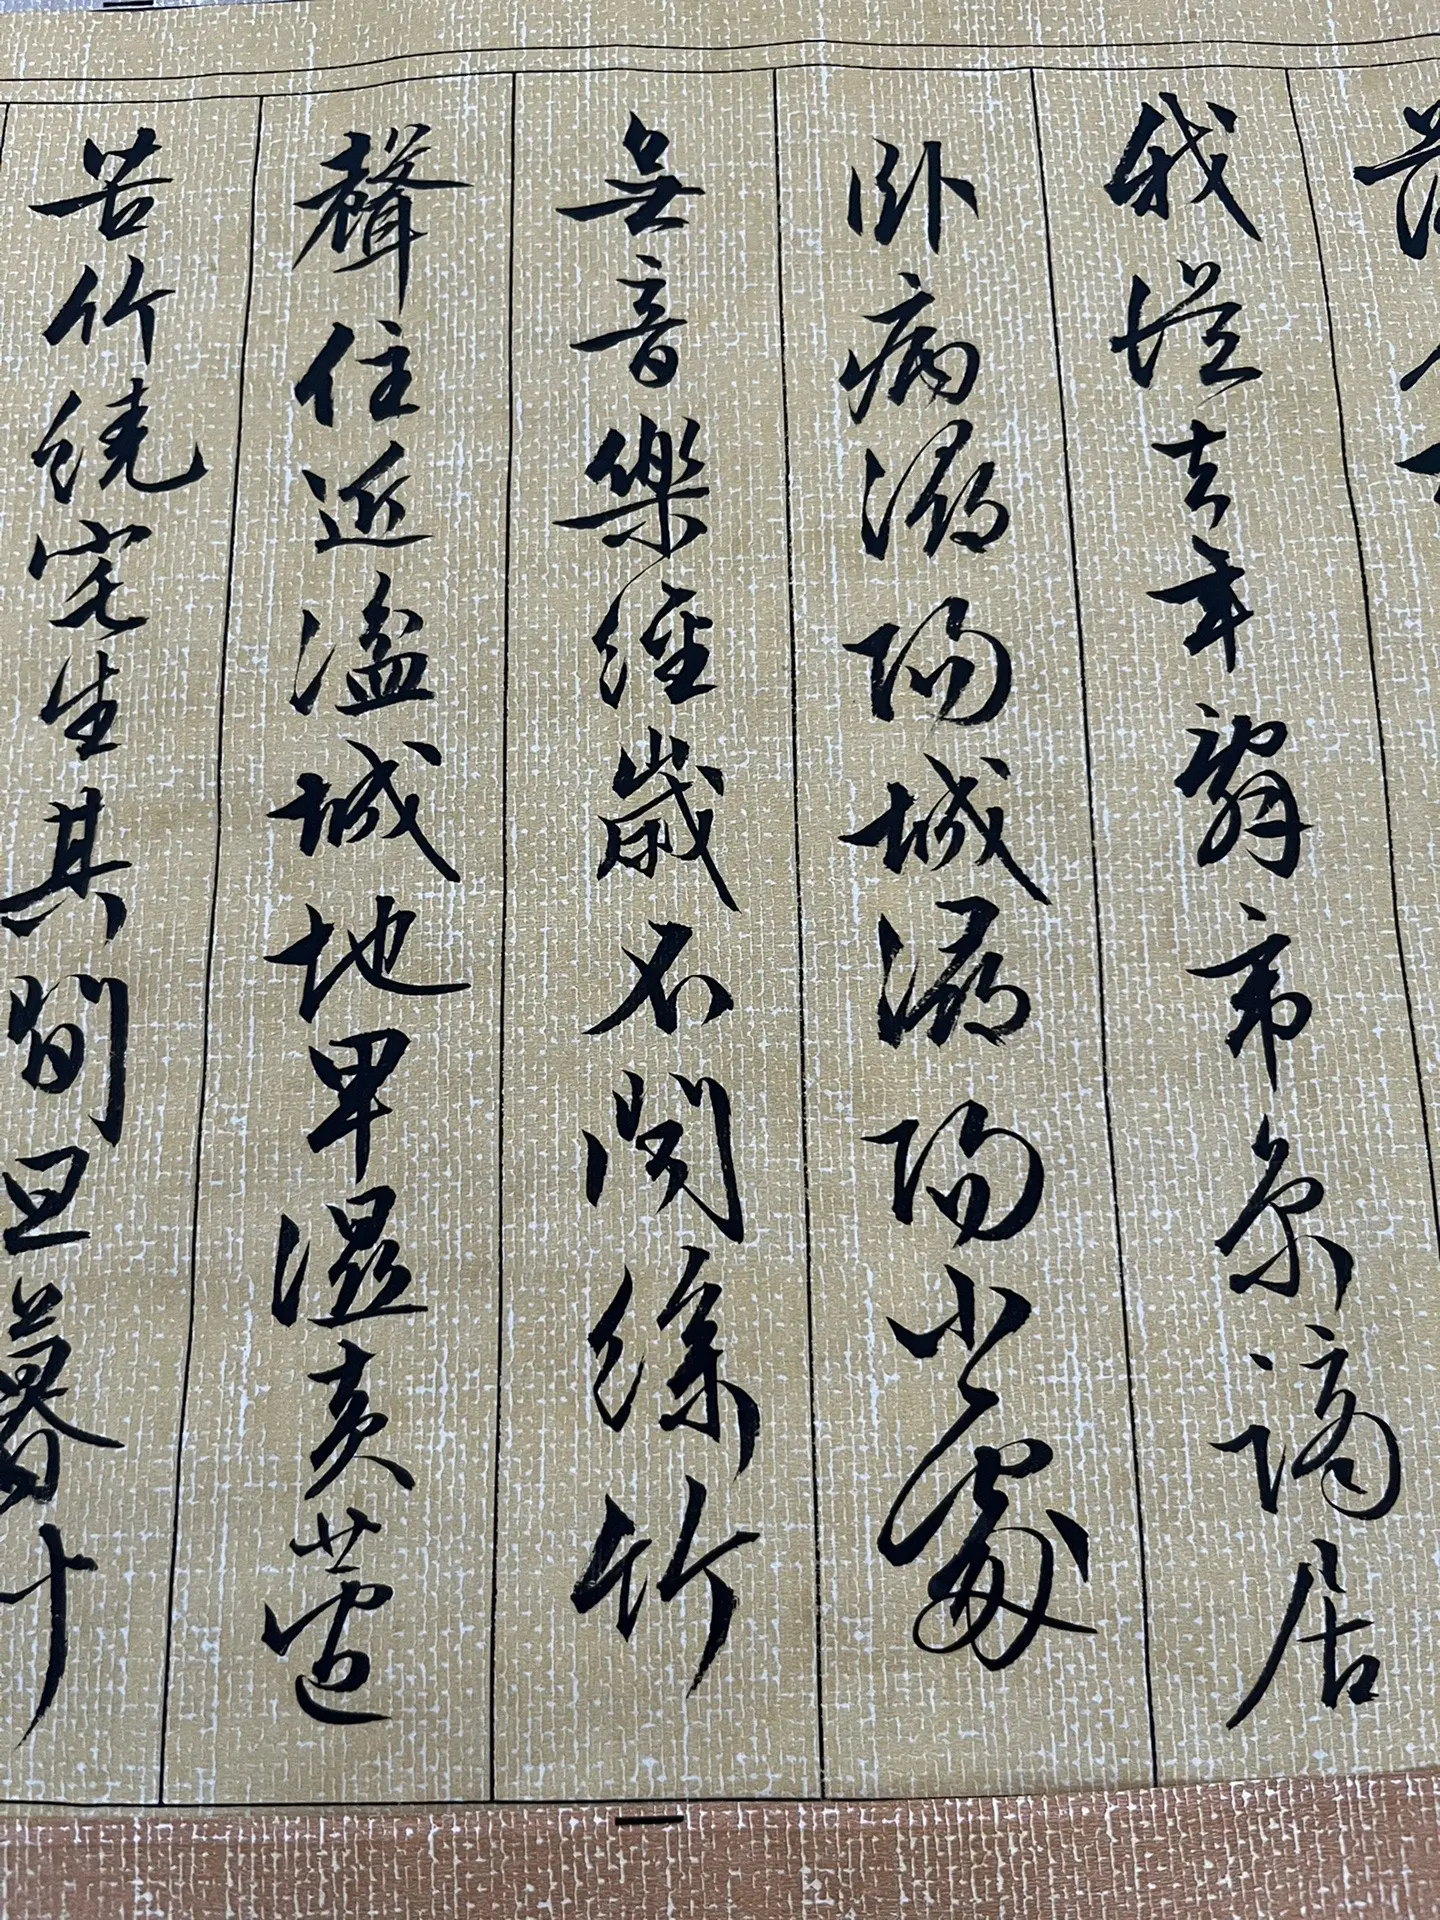 我從去年辭帝京謫居
臥病潯陽城潯陽小處
無音樂經歲不聞絲竹
聲住近湓城地卑濕黃蘆
苦竹繞宅生其間旦暮